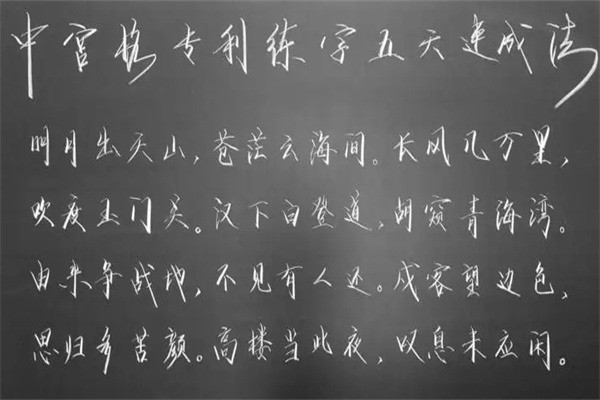 中宫格专利练字五天速成法
明月出天山，苍茫云海间。长风几万里，
吹度玉门关。汉下白登道，胡窥青海湾。
由来争战地，不见有人还。戍客望边色，
思归多苦颜。高楼当此夜，叹息未应闲。